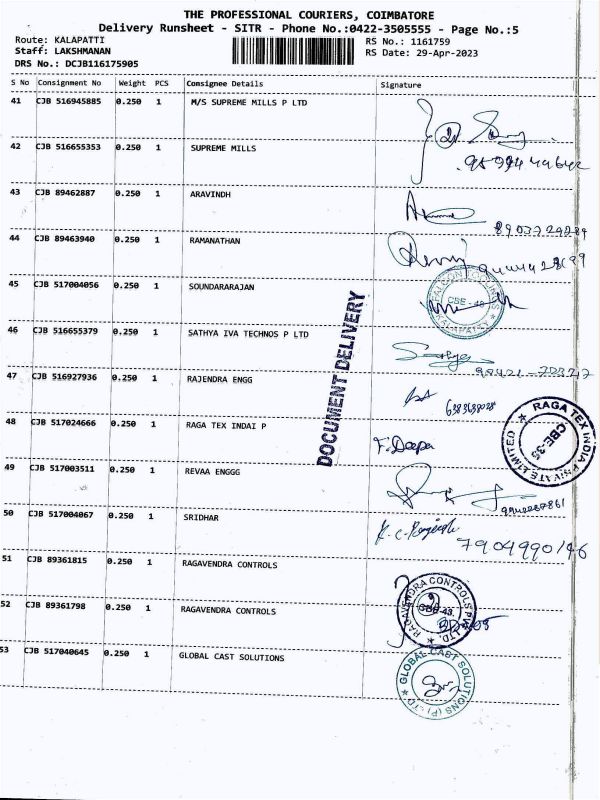 THE PROFESSIONAL COURIERS, COIMBATORE
Delivery Runsheet - SITR - Phone No.:0422-3505555 - Page No.:5
Route: KALAPATTI RS No.: 1161759
Staff: LAKSHMANAN RS Date: 29-Apr-2023
DRS No.: DCJB116175905
S No Consignment No Weight PCS Consignee Details Signature
41 CJB 516945885 0.250 1 M/S SUPREME MILLS P LTD
42 CJB 516655353 0.250 1 SUPREME MILLS
43 CJB 89462887 0.250 1 ARAVINDH
44 CJB 89463940 0.250 1 RAMANATHAN
45 CJB 517004056 0.250 1 SOUNDARARAJAN
CBE - 48
46 CJB 516655379 0.250 1 SATHYA IVA TECHNOS P LTD
Sathya
47 CJB 516927936 0.250 1 RAJENDRA ENGG
DOCUMENT DELIVERY
48 CJB 517024666 0.250 1 RAGA TEX INDAI P F. Deepa
RAGA TEX INDIA PRIVATE LIMITED
CBE-35
49 CJB 517003511 0.250 1 REVAA ENGGG
50 CJB 517004067 0.250 1 SRIDHAR
7904990146
51 CJB 89361815 0.250 1 RAGAVENDRA CONTROLS
RAGAVENDRA CONTROLS PVT. LTD.
52 CJB 89361798 0.250 1 RAGAVENDRA CONTROLS
53 CJB 517040645 0.250 1 GLOBAL CAST SOLUTIONS
GLOBAL CAST SOLUTIONS (P) LTD